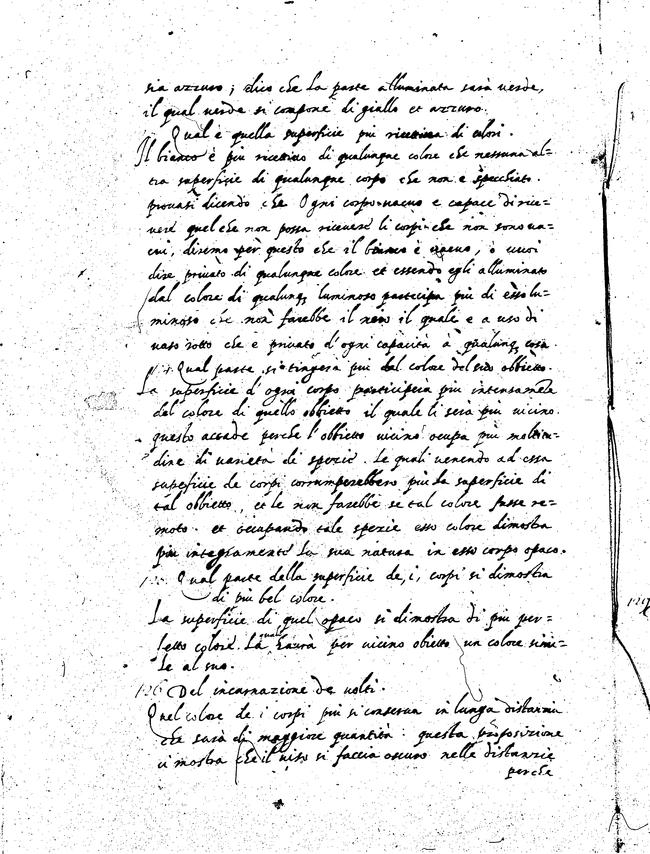 sia azzuro; dico che la parte alluminata sarà verde,
il qual verde si compone di giallo et azzuro.
Qual è quella superficie piu ricettiva di colori.
Il bianco è piu ricettivo di qualunque colore che nessuna al=
tra superficie di qualunque corpo che non è specchiato.
provasi dicendo che Ogni corpo vacuo e capace di rice=
vere quel che non possa ricevere li corpi che non sono va=
cui, diremo per questo che il bianco è vacuo, ò vuoi
dire privato di qualunque colore et essendo egli alluminato
dal colore di qualunq luminoso participa piu di esso lu=
minoso che non farebbe il nero il quale e a uso di
vaso rotto che e privato d'ogni capacità à qualunq cosa.
Qual parte si tingera piu del colore del suo obbietto.
La superficie d'ogni corpo participera piu intensamete
dal colore di quello obbietto il quale li sera piu vicino.
questo accade perche l'obbietto vicino ocupa piu moltitu=
dine di varietà di spezie. le quali venendo ad essa
superficie de corpi corrumperebbero piu la superficie di
tal obbietto, et le non farebbe se tal colore fusse re=
moto. et occupando tale spezie esso colore dimostra
piu integramente la sua natura in esso corpo opaco.
Qual parte della superficie de, i, corpi si dimostra
di piu bel colore.
La superficie di quel opaco si dimostra di piu per=
fetto colore. La quale havrà per vicino obietto un colore simi=
le al suo.
126 Del incarnazione de volti.
Quel colore de, i corpi piu si conserva in lunga distantia
che sarà di maggiore quantità. questa proposizione
ci mostra che il viso si faccia oscuro nelle distanzie
perche